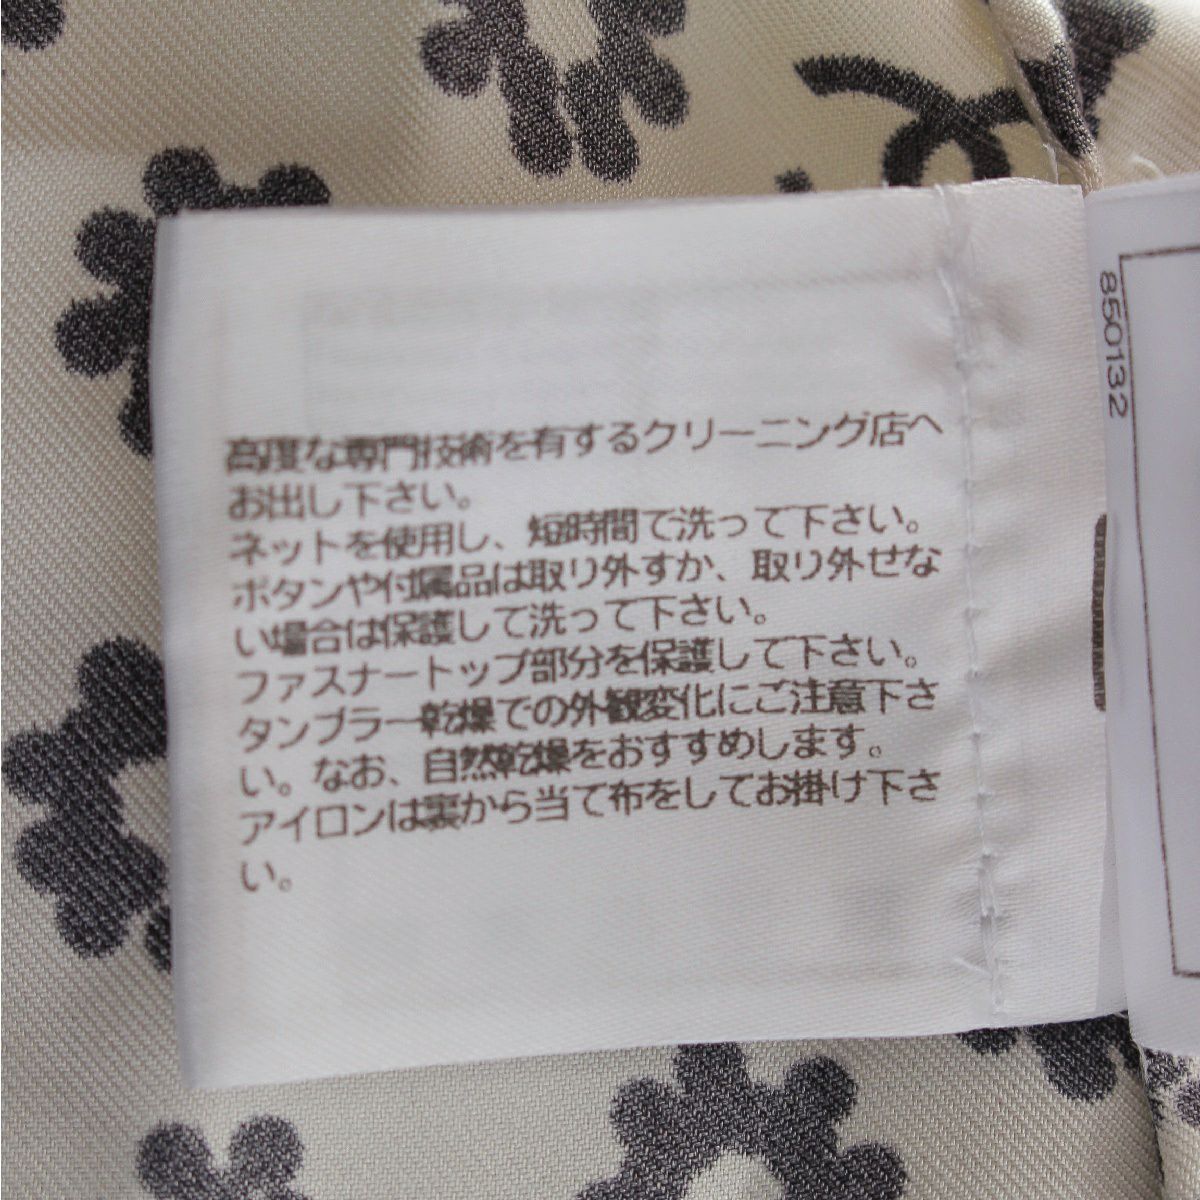 高度な専門技術を有するクリーニング店へ
お出し下さい。
ネットを使用し、短時間で洗って下さい。
ボタンや付属品は取り外すか、取り外せな
い場合は保護して洗って下さい。
ファスナートップ部分を保護して下さい。
タンブラー乾燥での外観変化にご注意下さ
い。なお、自然乾燥をおすすめします。
アイロンは裏から当て布をしてお掛け下さ
い。
850132